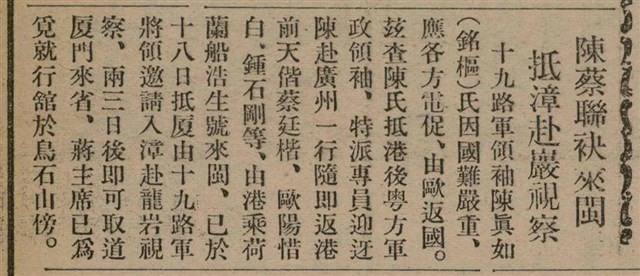 陳蔡聯袂來閩
抵漳赴巖視察
十九路軍領袖陳眞如
(銘樞)氏因國難嚴重、
應各方電促、由歐返國。
茲查陳氏抵港後粤方軍
政領袖、特派專員迎迓
陳赴廣州一行隨即返港
前天偕蔡廷楷、歐陽惜
白、鍾石剛等、由港乘荷
蘭船浩生號來閩、已於
十八日抵厦由十九路軍
將領邀請入漳赴龍岩視
察、兩三日後即可取道
厦門來省、蔣主席已爲
覓就行舘於烏石山傍。